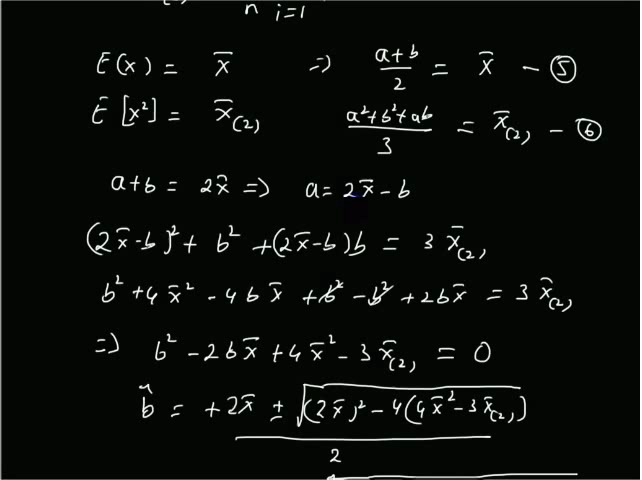 n i=1
E(x) = x̄ ⇒ (a+b)/2 = x̄ – ⑤
E[x²] = x̄₍₂₎ (a²+b²+ab)/3 = x̄₍₂₎ – ⑥
a+b = 2x̄ ⇒ a = 2x̄ – b
(2x̄-b)² + b² + (2x̄-b)b = 3 x̄₍₂₎
b² + 4x̄² - 4bx̄ + b² - b² + 2bx̄ = 3 x̄₍₂₎
⇒ b² - 2bx̄ + 4x̄² - 3x̄₍₂₎ = 0
b̂ = (+2x̄ ± √((2x̄)² - 4(4x̄² - 3x̄₍₂₎)))/2